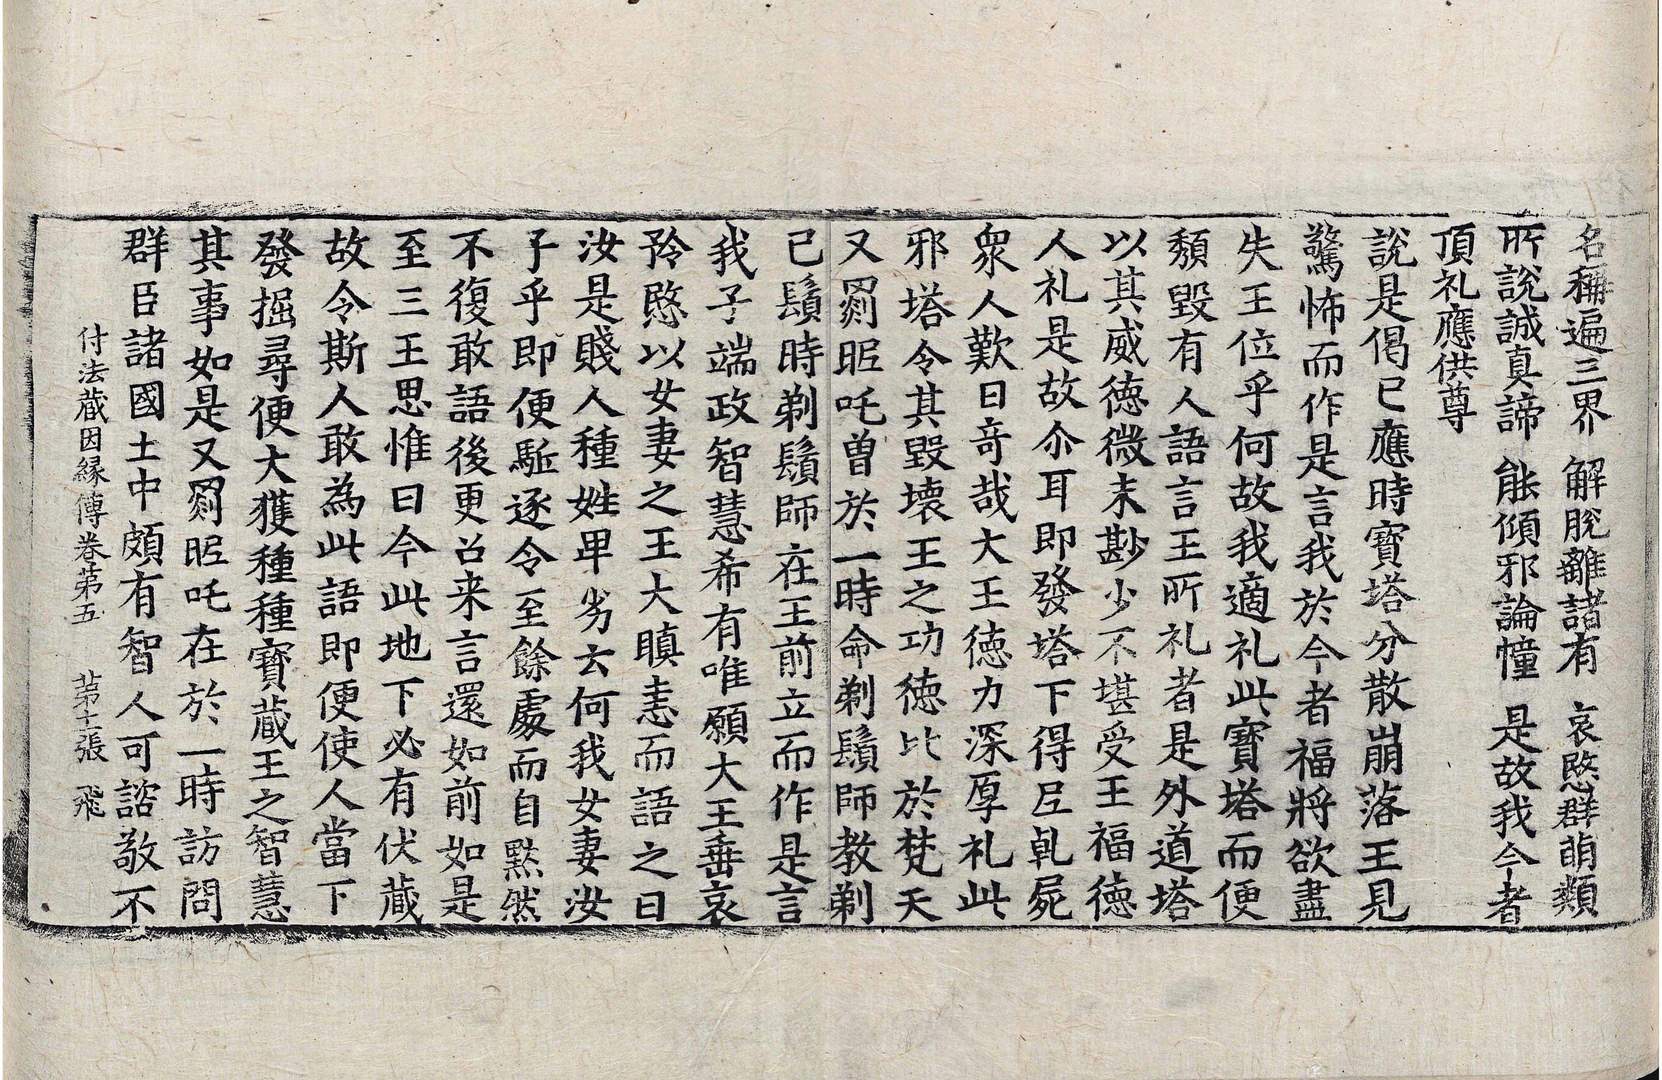 名稱遍三界 解脫離諸有 哀愍群萌類
所說誠真諦 能傾邪論幢 是故我今者
頂礼應供尊
說是偈已應時寶塔分散崩落王見
驚怖而作是言我於今者福將欲盡
失王位乎何故我適礼此寶塔而便
頹毀有人語言王所礼者是外道塔
以其威德微末尠少不堪受王福德
人礼是故尒耳即發塔下得尼乹屍
衆人歎曰竒哉大王德力深厚礼此
邪塔令其毀壞王之功德比於梵天
又罽昵吒曽於一時命剃鬚師教剃
已鬚時剃鬚師在王前立而作是言
我子端政智慧希有唯願大王垂哀
矜愍以女妻之王大瞋恚而語之曰
汝是賤人種姓卑劣云何我女妻汝
子乎即便駈逐令至餘處而自黙然
不復敢語後更召来言還如前如是
至三王思惟曰今此地下必有伏藏
故令斯人敢為此語即便使人當下
發掘尋便大獲種種寶藏王之智慧
其事如是又罽昵吒在於一時訪問
群臣諸國土中頗有智人可諮敬不
付法藏因縁傳卷第五 第十張 飛